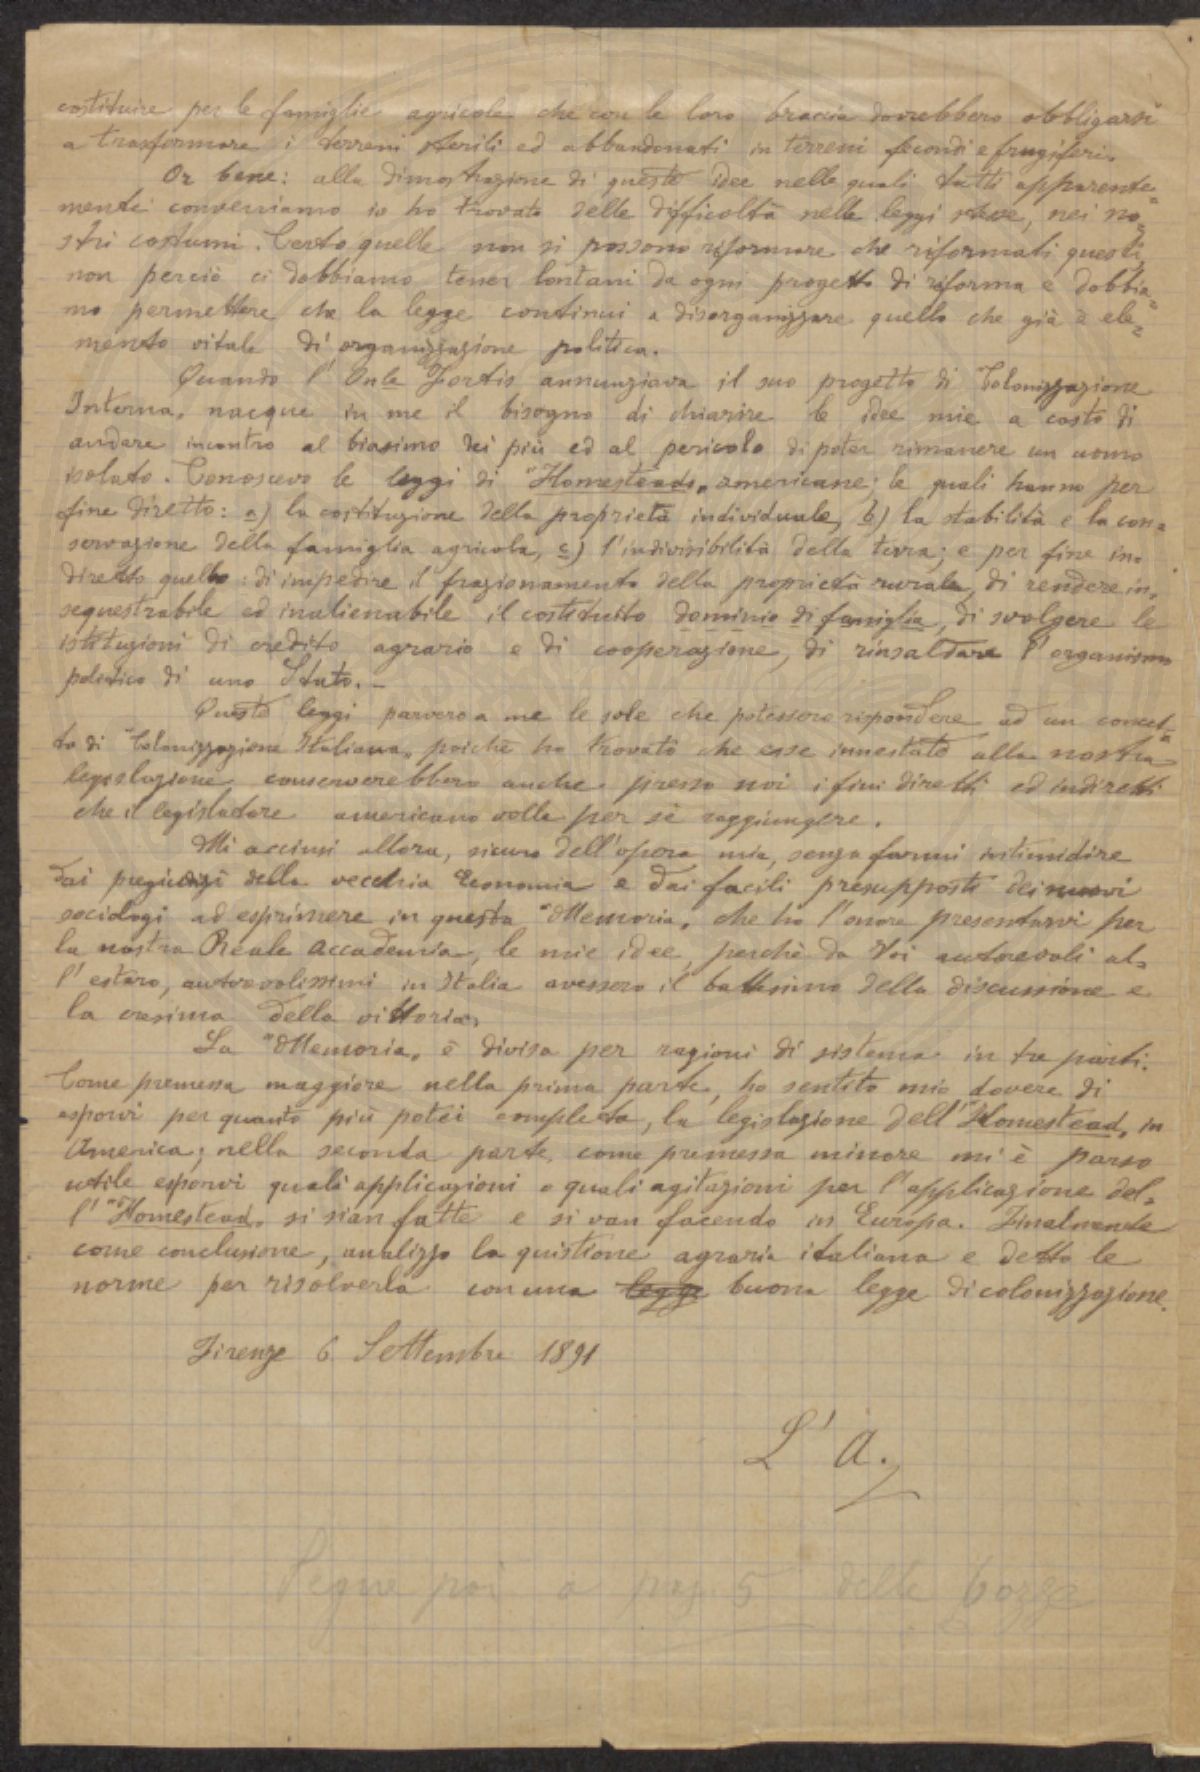 costituire per le famiglie agricole che con le loro braccia dovrebbero obbligarsi
a trasformare i terreni sterili ed abbandonati in terreni fecondi e frugiferi.
Or bene: alla dimostrazione di queste idee nelle quali tutti apparente=
mente conveniamo io ho trovato delle difficoltà nelle leggi stesse, nei no=
stri costumi. Certo quelle non si possono riformare che riformati questi,
non perciò ci dobbiamo tener lontani da ogni progetto di riforma e dobbia=
mo permettere che la legge continui a disorganizzare quello che già è ele=
mento vitale di organizzazione politica.
Quando l'Onle Fortis annunziava il suo progetto di Colonizzazione
Interna, nacque in me il bisogno di chiarire le idee mie a costo di
andare incontro al biasimo dei più ed al pericolo di poter rimanere un uomo
isolato. Conoscevo le leggi di "Homesteads" americane; le quali hanno per
fine diretto: a) la costituzione della proprietà individuale, b) la stabilità e la con=
servazione della famiglia agricola, c) l'indivisibilità della terra; e per fine in=
diretto quello: di impedire il frazionamento della proprietà rurale, di rendere in=
sequestrabile ed inalienabile il costituito dominio di famiglia, di svolgere le
istituzioni di credito agrario e di cooperazione, di rinsaldare l'organismo
politico di uno Stato.-
Queste leggi parvero a me le sole che potessero rispondere ad un concet=
to di "Colonizzazione Italiana" poichè ho trovato che esse innestate alla nostra
legislazione conserverebbero anche presso noi i fini diretti ed indiretti
che il legislatore americano volle per sè raggiungere.
Mi accinsi allora, sicuro dell'opera mia, senza farmi intimidire
dai pregiudizi della vecchia Economia e dai facili presupposti dei nuovi
sociologi ad esprimere in questa "Memoria" che ho l'onore presentarvi per
la nostra Reale Accademia, le mie idee, perchè da Voi autorevoli al=
l'estero, autorevolissimi in Italia avessero il battesimo della discussione e
la cresima della vittoria.
La "Memoria" è divisa per ragioni di sistema in tre parti.
Come premessa maggiore nella prima parte, ho sentito mio dovere di
esporvi per quanto più potei completa, la legislazione dell'"Homestead" in
America; nella seconda parte, come premessa minore mi è parso
utile esporvi quali applicazioni e quali agitazioni per l'applicazione del=
l'"Homestead" si sian fatte e si van facendo in Europa. Finalmente
come conclusione, analizzo la quistione agraria italiana e detto le
norme per risolverla con una legge buona legge di colonizzazione.
Firenze 6 Settembre 1891
L'A.
Segue poi a pag. 5 delle bozze